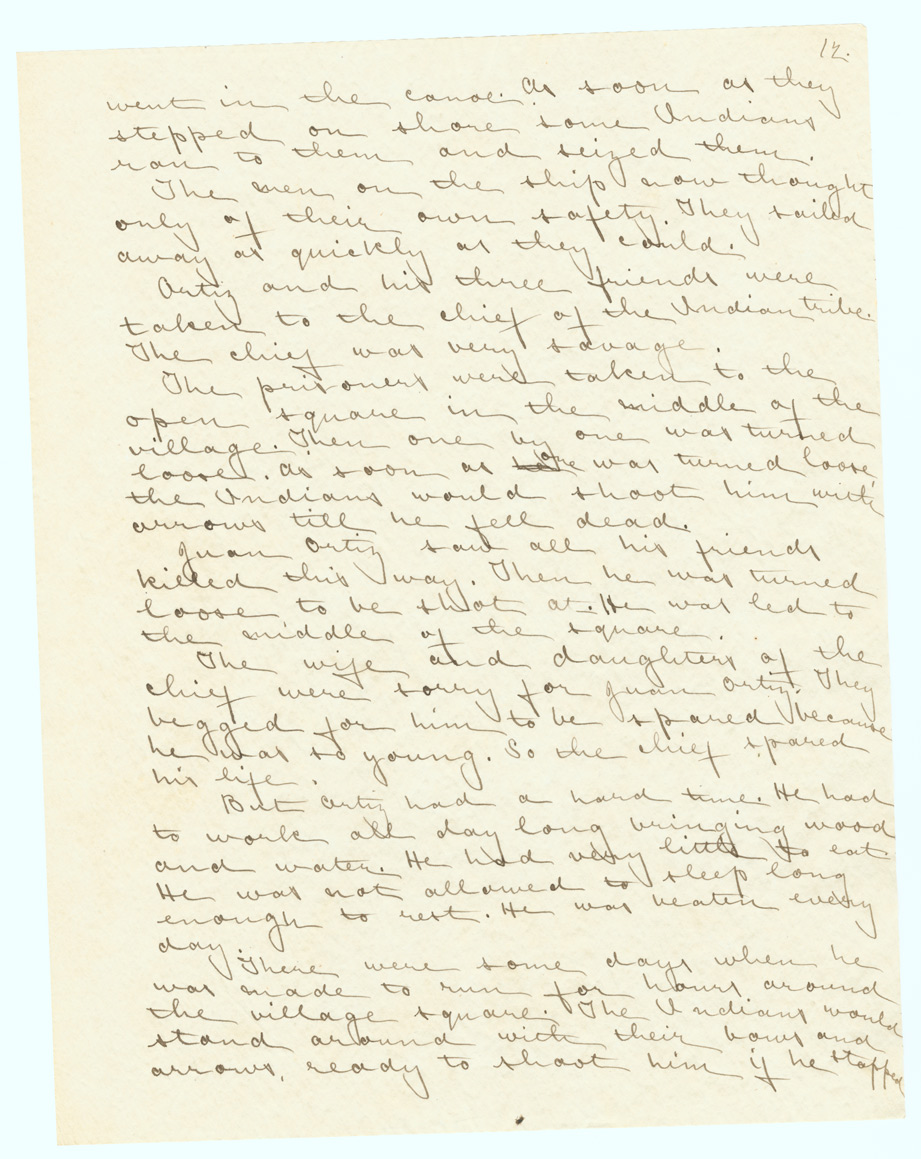 12.
went in the canoe. As soon as they
stepped on shore some Indians
ran to them and seized them.
The men on the ship now thought
only of their own safety. They sailed
away as quickly as they could.
Ortiz and his three friends were
taken to the chief of the Indian tribe.
The chief was very savage.
The prisoners were taken to the
open square in the middle of the
village. Then one by one was turned
loose. As soon as one was turned loose
the Indians would shoot him with
arrows till he fell dead.
Juan Ortiz saw all his friends
killed this way. Then he was turned
loose to be shot at. He was led to
the middle of the square.
The wife and daughters of the
chief were sorry for Juan Ortiz. They
begged for him to be spared because
he was so young. So the chief spared
his life.
But Ortiz had a hard time. He had
to work all day long bringing wood
and water. He had very little to eat.
He was not allowed to sleep long
enough to rest. He was beaten every
day.
There were some days when he
was made to run for hours around
the village square. The Indians would
stand around with their bows and
arrows, ready to shoot him if he stopped